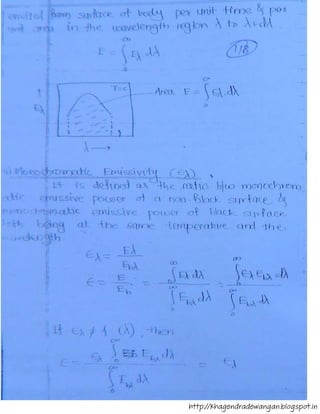 emitted from surface of body per unit time & per
unit area in the wavelength region λ to λ+dλ.
E = ∫₀^∞ Eλ dλ
118
T=C
Area E = ∫₀^∞ Eλ.dλ
Eλ
λ →
Monochromatic Emissivity (ελ)
It is defined as the ratio b/w monochrom
atic emissive power of a non-black surface &
monochromatic emissive power of black surface
both being at the same temperature and the
wavelength.
ελ = Eλ / Ebλ
ε = E / Eb = ∫₀^∞ Eλ dλ / ∫₀^∞ Ebλ dλ = ∫₀^∞ ελ Ebλ dλ / ∫₀^∞ Ebλ dλ
If ελ ≠ f (λ), then
ε = ελ ∫₀^∞ Ebλ dλ / ∫₀^∞ Ebλ dλ = ελ
http://khagendradewangan.blogspot.in